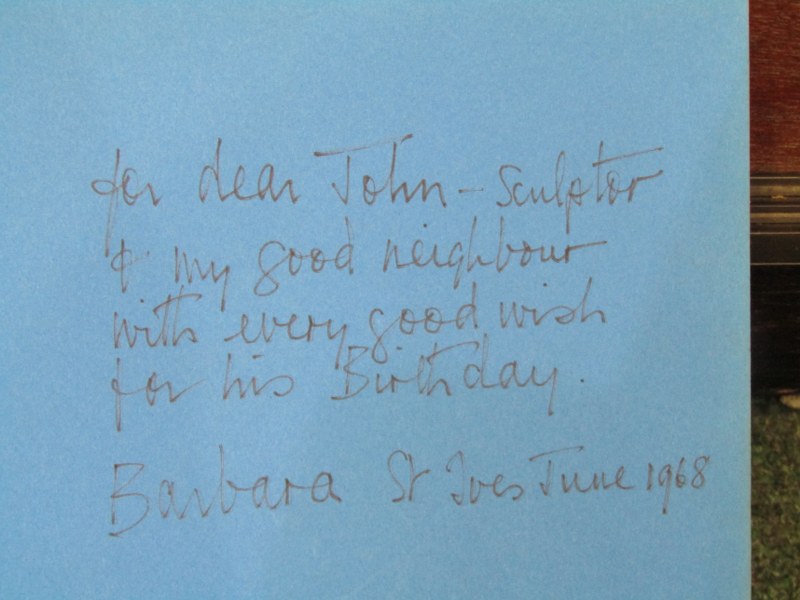 for dear John - Sculptor
& my good neighbour
with every good wish
for his Birthday.
Barbara St Ives June 1968